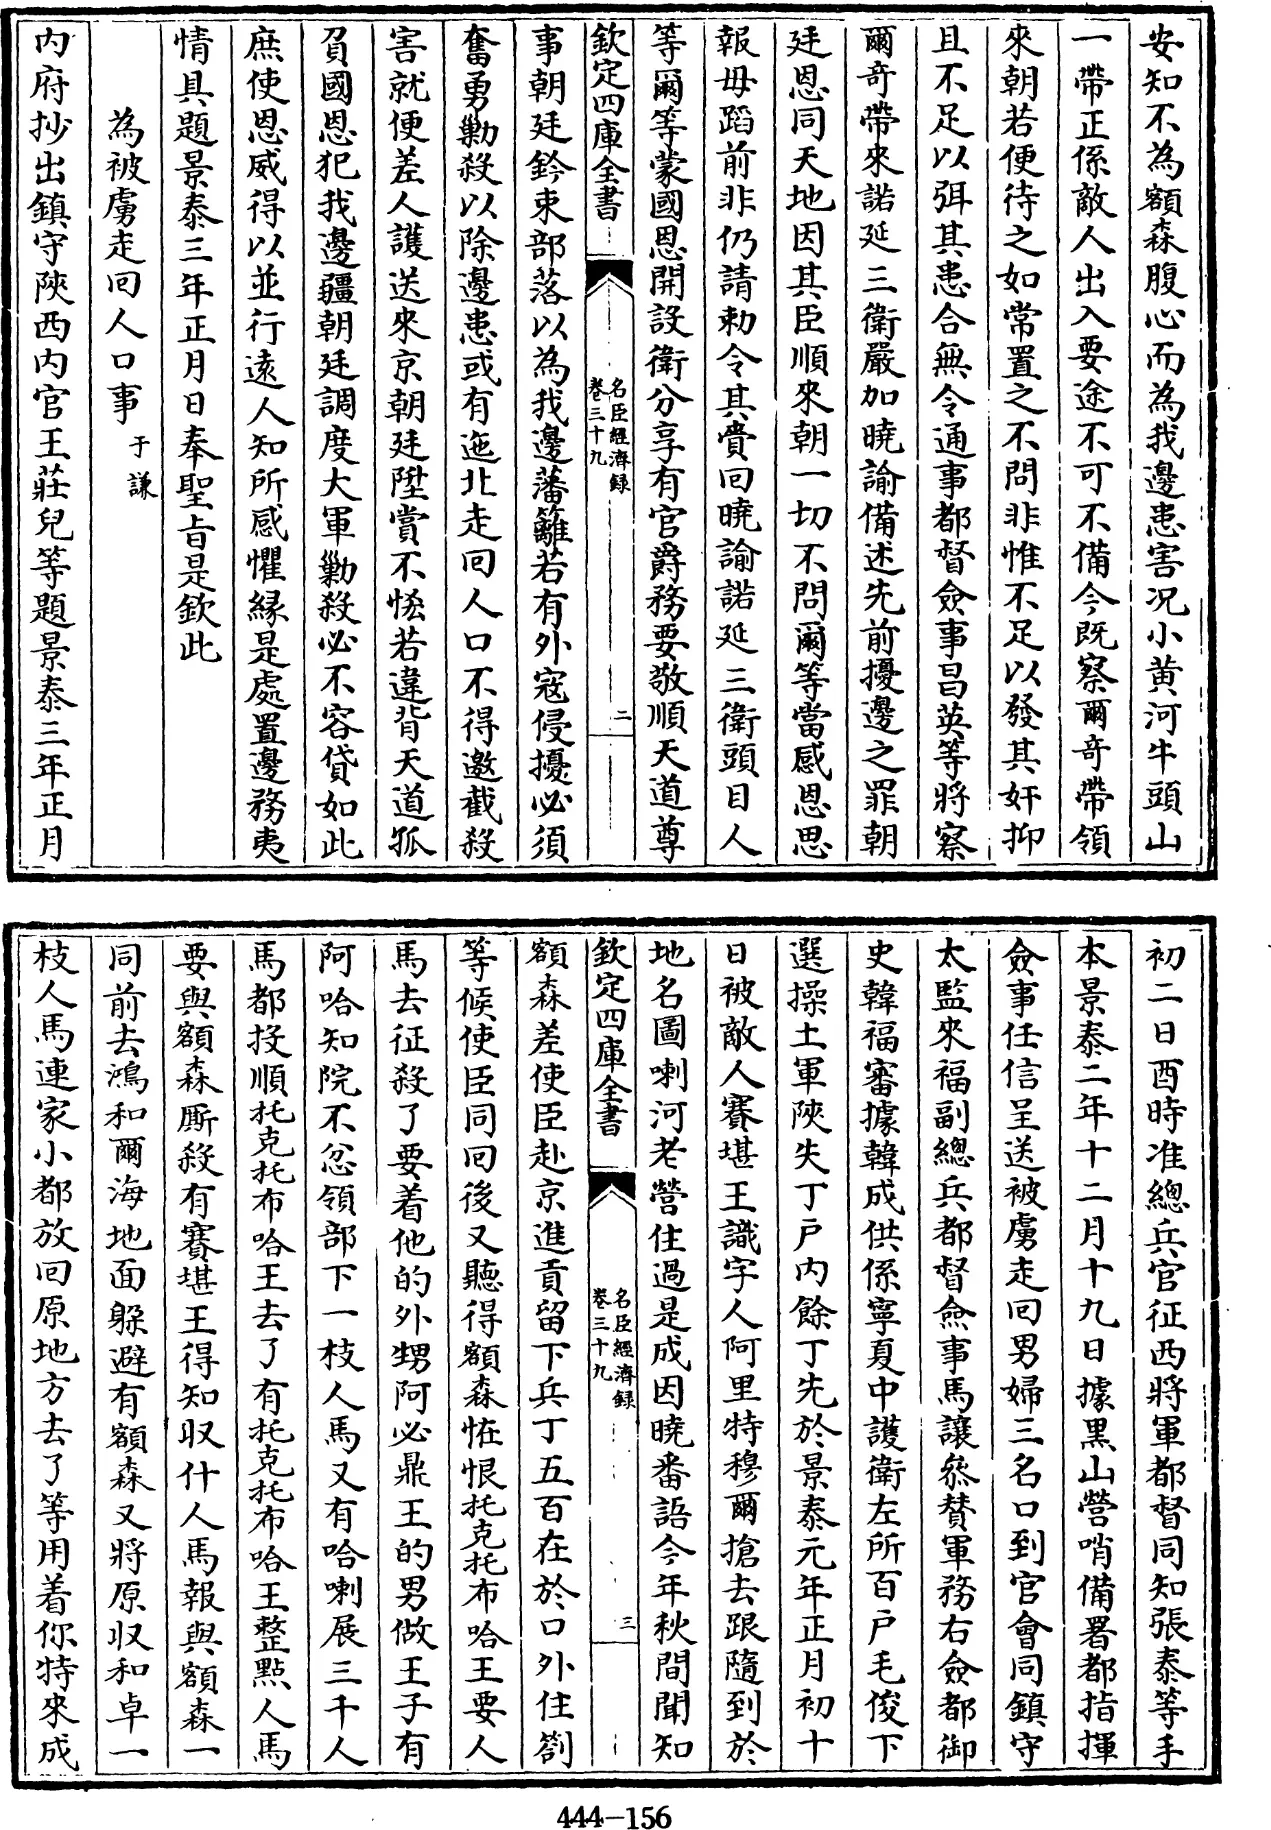 安知不為額森腹心而為我邊患害况小黄河牛頭山
一帶正係敵人出入要途不可不備今既察爾竒帶領
來朝若便待之如常置之不問非惟不足以發其奸抑
且不足以弭其患合無令通事都督僉事昌英等將察
爾竒帶來諾延三衛嚴加曉諭備述先前擾邊之罪朝
廷恩同天地因其臣順來朝一切不問爾等當感恩思
報毋蹈前非仍請勅令其賫回曉諭諾延三衛頭目人
等爾等蒙國恩開設衛分享有官爵務要敬順天道尊
欽定四庫全書
名臣經濟録
卷三十九
二
事朝廷鈐束部落以為我邊藩籬若有外寇侵擾必須
奮勇勦殺以除邊患或有迤北走回人口不得邀截殺
害就便差人護送來京朝廷陞賞不恡若違背天道孤
負國恩犯我邊疆朝廷調度大軍勦殺必不容貸如此
庶使恩威得以並行遠人知所感懼縁是處置邊務夷
情具題景泰三年正月日奉聖旨是欽此
為被虜走回人口事 于謙
内府抄出鎮守陜西内官王莊兒等題景泰三年正月
初二日酉時准總兵官征西將軍都督同知張泰等手
本景泰二年十二月十九日據黒山營哨備署都指揮
僉事任信呈送被虜走回男婦三名口到官會同鎮守
太監來福副總兵都督僉事馬讓叅賛軍務右僉都御
史韓福審據韓成供係寧夏中護衛左所百戶毛俊下
選操土軍陜失丁戶内餘丁先於景泰元年正月初十
日被敵人賽堪王識字人阿里特穆爾搶去跟隨到於
地名圖喇河老營住過是成因曉番語今年秋間聞知
欽定四庫全書
名臣經濟録
卷三十九
三
額森差使臣赴京進貢留下兵丁五百在於口外住劄
等候使臣同回後又聽得額森恠恨托克托布哈王要人
馬去征殺了要着他的外甥阿必鼎王的男做王子有
阿哈知院不忿領部下一枝人馬又有哈喇展三千人
馬都投順托克托布哈王去了有托克托布哈王整點人馬
要與額森厮殺有賽堪王得知収什人馬報與額森一
同前去鴻和爾海地面躲避有額森又將原収和卓一
枝人馬連家小都放回原地方去了等用着你特來成
444-156